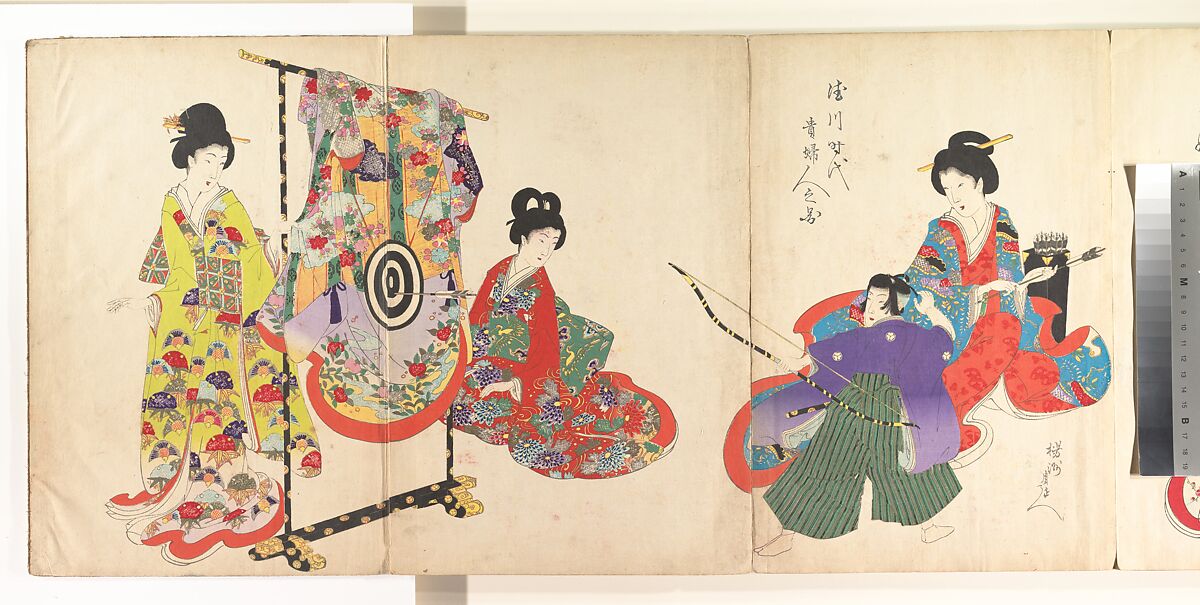 徳川時代
貴婦人之図
楊洲周延
A 1 2 3 4 5 6 M 8 9 10 11 12 13 14 15 B 17 18 19